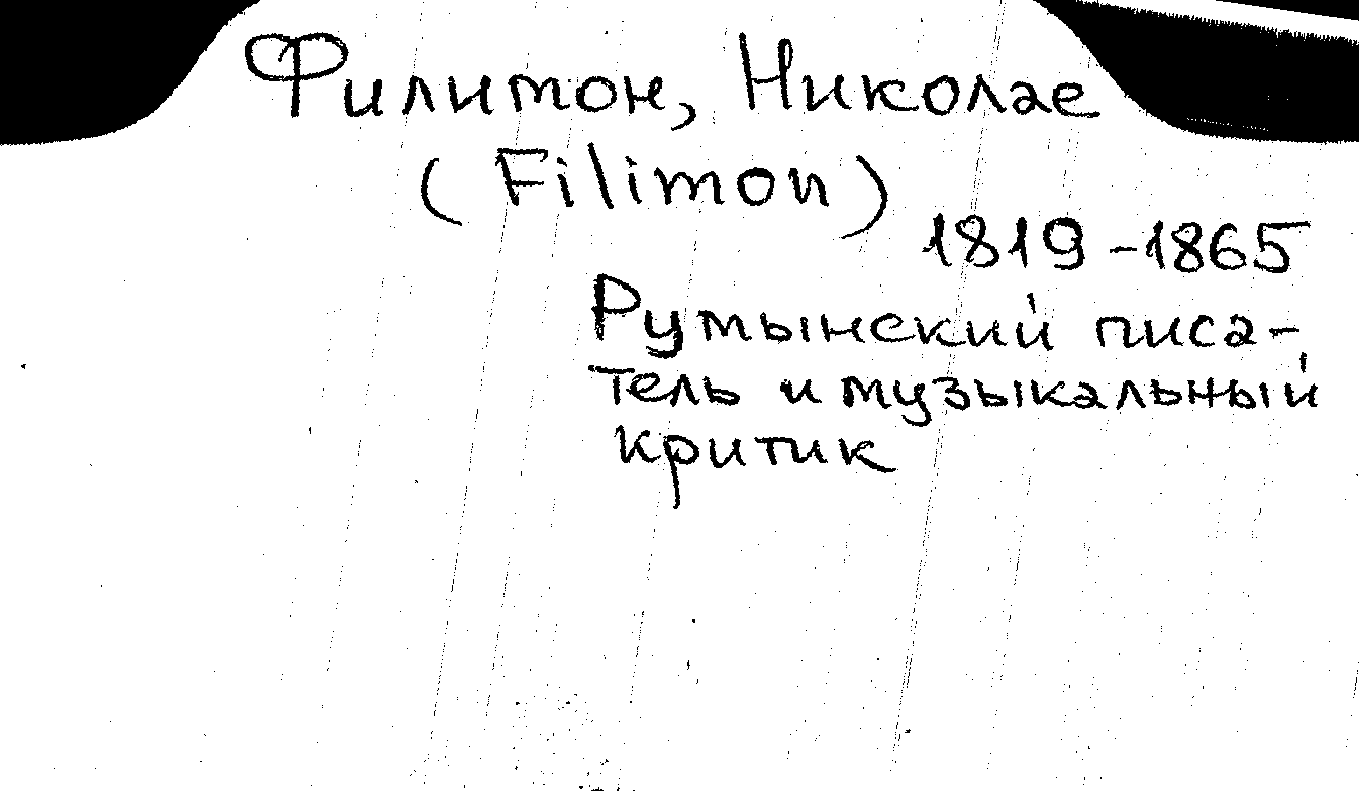 Филимон, Николае
(Filimon)
1819-1865
Румынский писа-
тель и музыкальный
критик